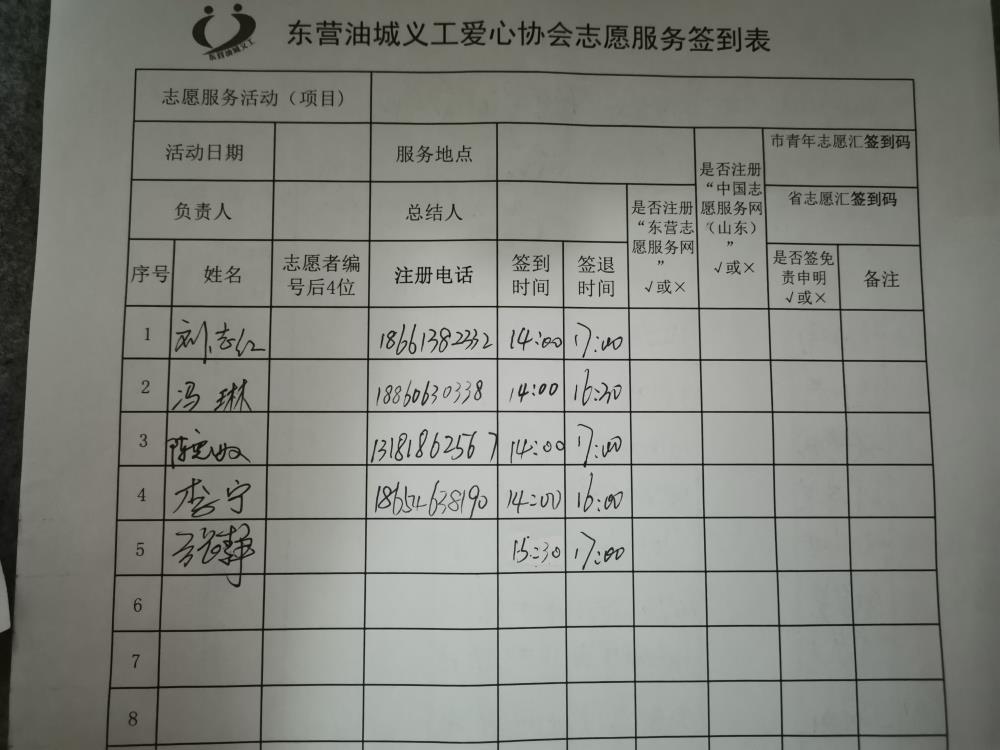 东营油城义工
东营油城义工爱心协会志愿服务签到表
志愿服务活动（项目）
活动日期 服务地点 是否注册“中国志愿服务网（山东）” √或× 市青年志愿汇签到码
负责人 总结人 是否注册“东营志愿服务网” √或× 省志愿汇签到码
序号 姓名 志愿者编号后4位 注册电话 签到时间 签退时间 是否签免责申明 √或× 备注
1 刘志红 18661382332 14:00 17:00
2 冯琳 18860630338 14:00 16:30
3 13181862567 14:00 17:00
4 李宁 18654638190 14:00 16:00
5 张静 15:30 17:00
6
7
8